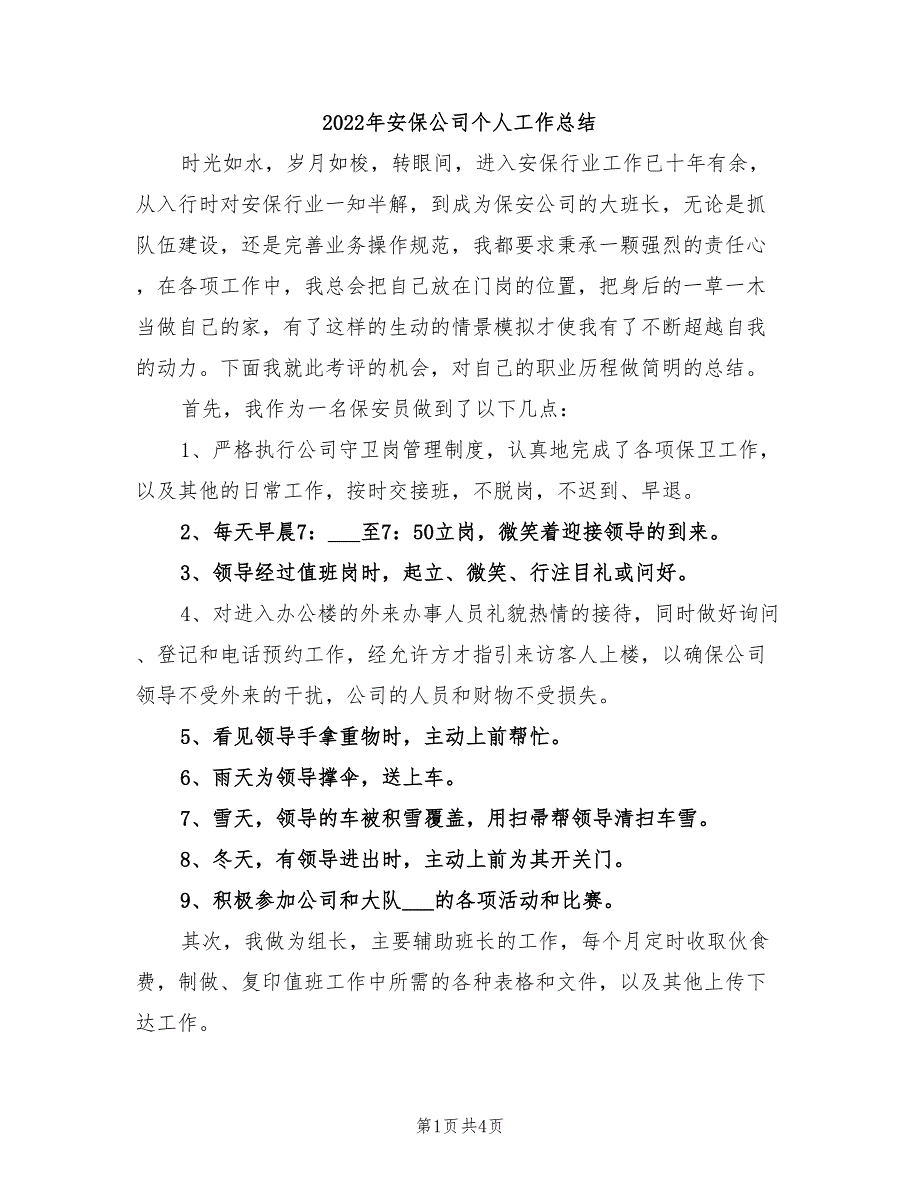 2022年安保公司个人工作总结
时光如水，岁月如梭，转眼间，进入安保行业工作已十年有余，
从入行时对安保行业一知半解，到成为保安公司的大班长，无论是抓
队伍建设，还是完善业务操作规范，我都要求秉承一颗强烈的责任心
，在各项工作中，我总会把自己放在门岗的位置，把身后的一草一木
当做自己的家，有了这样的生动的情景模拟才使我有了不断超越自我
的动力。下面我就此考评的机会，对自己的职业历程做简明的总结。
首先，我作为一名保安员做到了以下几点：
1、严格执行公司守卫岗管理制度，认真地完成了各项保卫工作，
以及其他的日常工作，按时交接班，不脱岗，不迟到、早退。
2、每天早晨7：___至7：50立岗，微笑着迎接领导的到来。
3、领导经过值班岗时，起立、微笑、行注目礼或问好。
4、对进入办公楼的外来办事人员礼貌热情的接待，同时做好询问
、登记和电话预约工作，经允许方才指引来访客人上楼，以确保公司
领导不受外来的干扰，公司的人员和财物不受损失。
5、看见领导手拿重物时，主动上前帮忙。
6、雨天为领导撑伞，送上车。
7、雪天，领导的车被积雪覆盖，用扫帚帮领导清扫车雪。
8、冬天，有领导进出时，主动上前为其开关门。
9、积极参加公司和大队___的各项活动和比赛。
其次，我做为组长，主要辅助班长的工作，每个月定时收取伙食
费，制做、复印值班工作中所需的各种表格和文件，以及其他上传下
达工作。
第1页共4页